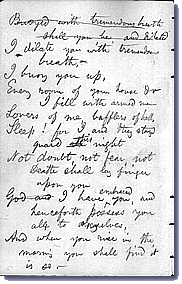 Buoyed with tremendous breath
shall you be and dilated
I dilate you with tremendous
breath,
I buoy you up,
Every room of your house do
I fill with armed men
Lovers of me, bafflers of hells,
Sleep! for I and they stand
guard this night
Not doubt, not fear, not
Death shall lay finger
upon you
God and I have you, embraced and
henceforth possess you
all to ourselves,
And when you rise in the
morning you shall find it
is so.—